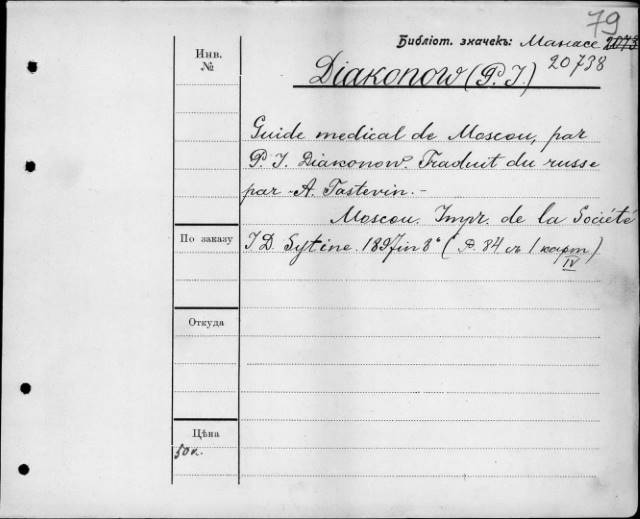 79
Библіот. значекъ: Манасе 2073
20738
Инв.
№
Diakonow (P. J.)
Guide medical de Moscou, par
P. J. Diakonow. Traduit du russe
par A. Tastevin. -
Moscou. Impr. de la Société
По заказу
J D. Sytine. 1897 in 8° (P. 84 съ 1 карт.)
IV
Откуда
Цѣна
50 к.